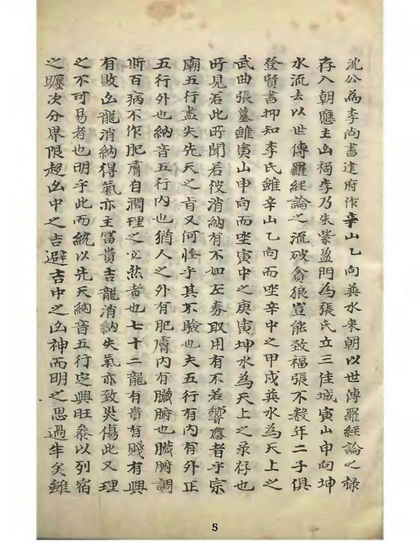 沈公為李尚書建府作辛山乙向巽水来朝以世傳羅經論之祿
存入朝應主凶禍李乃朱紫盈門為張氏立三佳城寅山申向坤
水流去以世傳羅經論之流破貪狼豈能致福張不数年二子俱
登賢書抑知李氏雖辛山乙向而坐辛中之甲戌巽水為天上之
武曲張墓雖寅山申向而坐寅中之庚寅坤水為天上之录存也
所見若此所聞若彼消納有不如左券取用有不若響應者乎宗
廟五行盡失先天之旨又何怪乎其不驗也夫五行有内有外正
五行外也納音五行内也猶人之外有肥膚内有臟腑也臟腑調
斯百病不作肥膚自潤理之必然者也七十二龍有貴有賤有興
有敗凶龍消納得氣亦主富貴吉龍消納失氣亦致災傷此又理
之不可易者也明乎此而統以先天納音五行定興旺叅以列宿
之躔次分界限趨凶中之吉避吉中之凶神而明之思過半矣雖
5